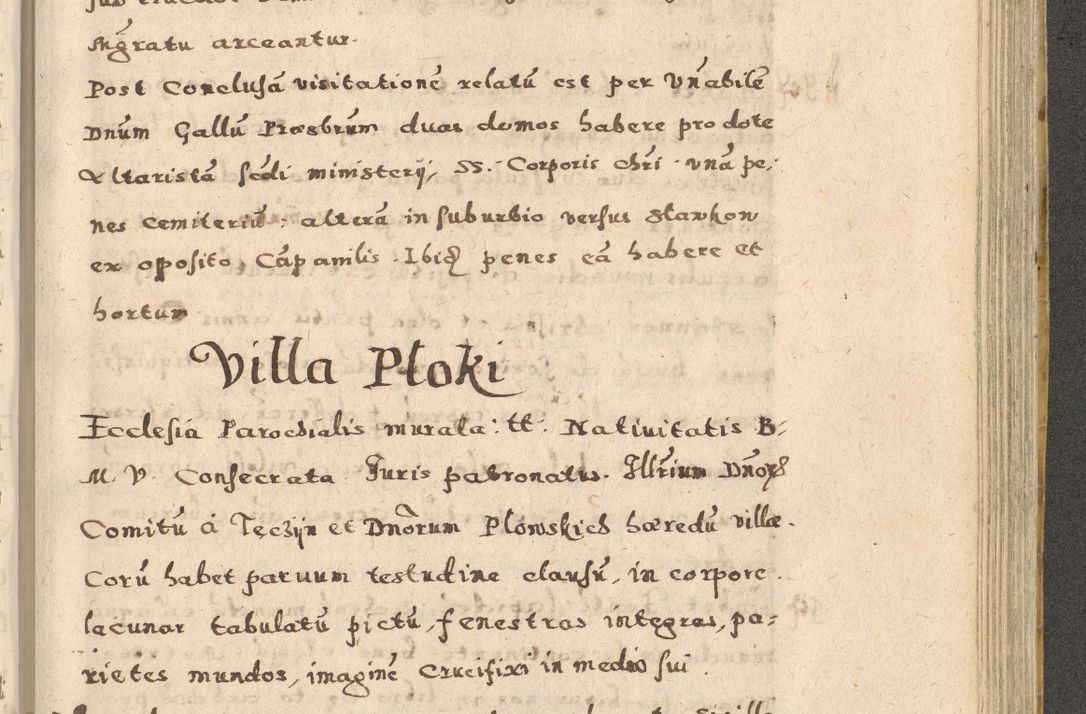 ingratu arceantur.
Post Conclusā visitationē relatū est per Vn̄abilē
Dnūm Gallū Præsbrūm duas domos habere pro dote
Altaristā sc̄di ministerij, SS. Corporis chr̄i · vnā pe-
nes Cemiteriū : alterā in suburbio versus Slawkow
ex opposito Cāpanilis · Ibid penes eā habere et
hortum
Villa Płoki
Ecclesia Parochialis murata : tt : Natiuitatis B-
M. V. Consecrata Juris patronatus. Illr̄ium Dn̄or
Comitū a Tęczyn et Dn̄orum Płowskich hæredū villæ.
Corū habet paruum testudine clausū, in corpore
lacunar tabulatū pictū, fenestras integras, pa-
rietes mundos, imaginē Crucifixi in medio sui.